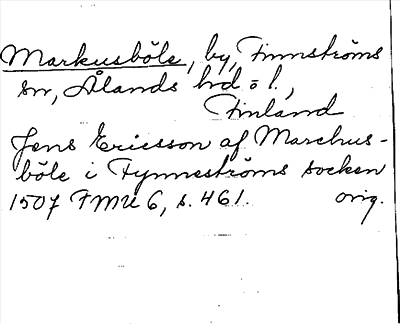 Markusböle, by, Finnströms
sn, Ålands hd o l.,
Finland
Jöns Ericsson af Marchus-
böle i Fynneströms socken
1507 FMU 6, s. 461. orig.